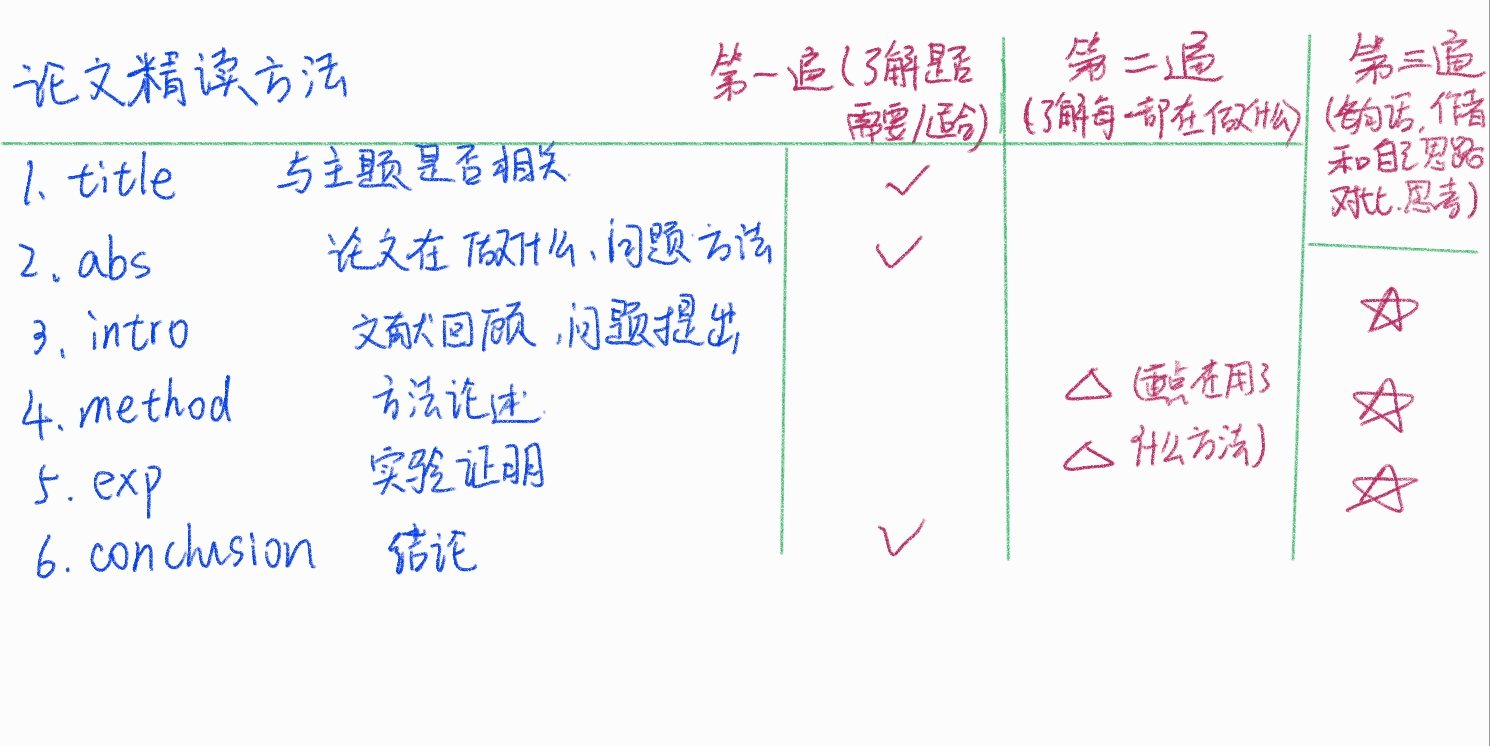 论文精读方法
第一遍(了解是否
需要/适合)
第二遍
(了解每一部在做什么)
第三遍
(每句话,作者
和自己思路
对比.思考)
1. title 与主题是否相关 ✓
2. abs 论文在做什么、问题方法 ✓
3. intro 文献回顾,问题提出 ☆
4. method 方法论述 △ (重点在用了 ☆
5. exp 实验证明 △ 什么方法) ☆
6. conclusion 结论 ✓